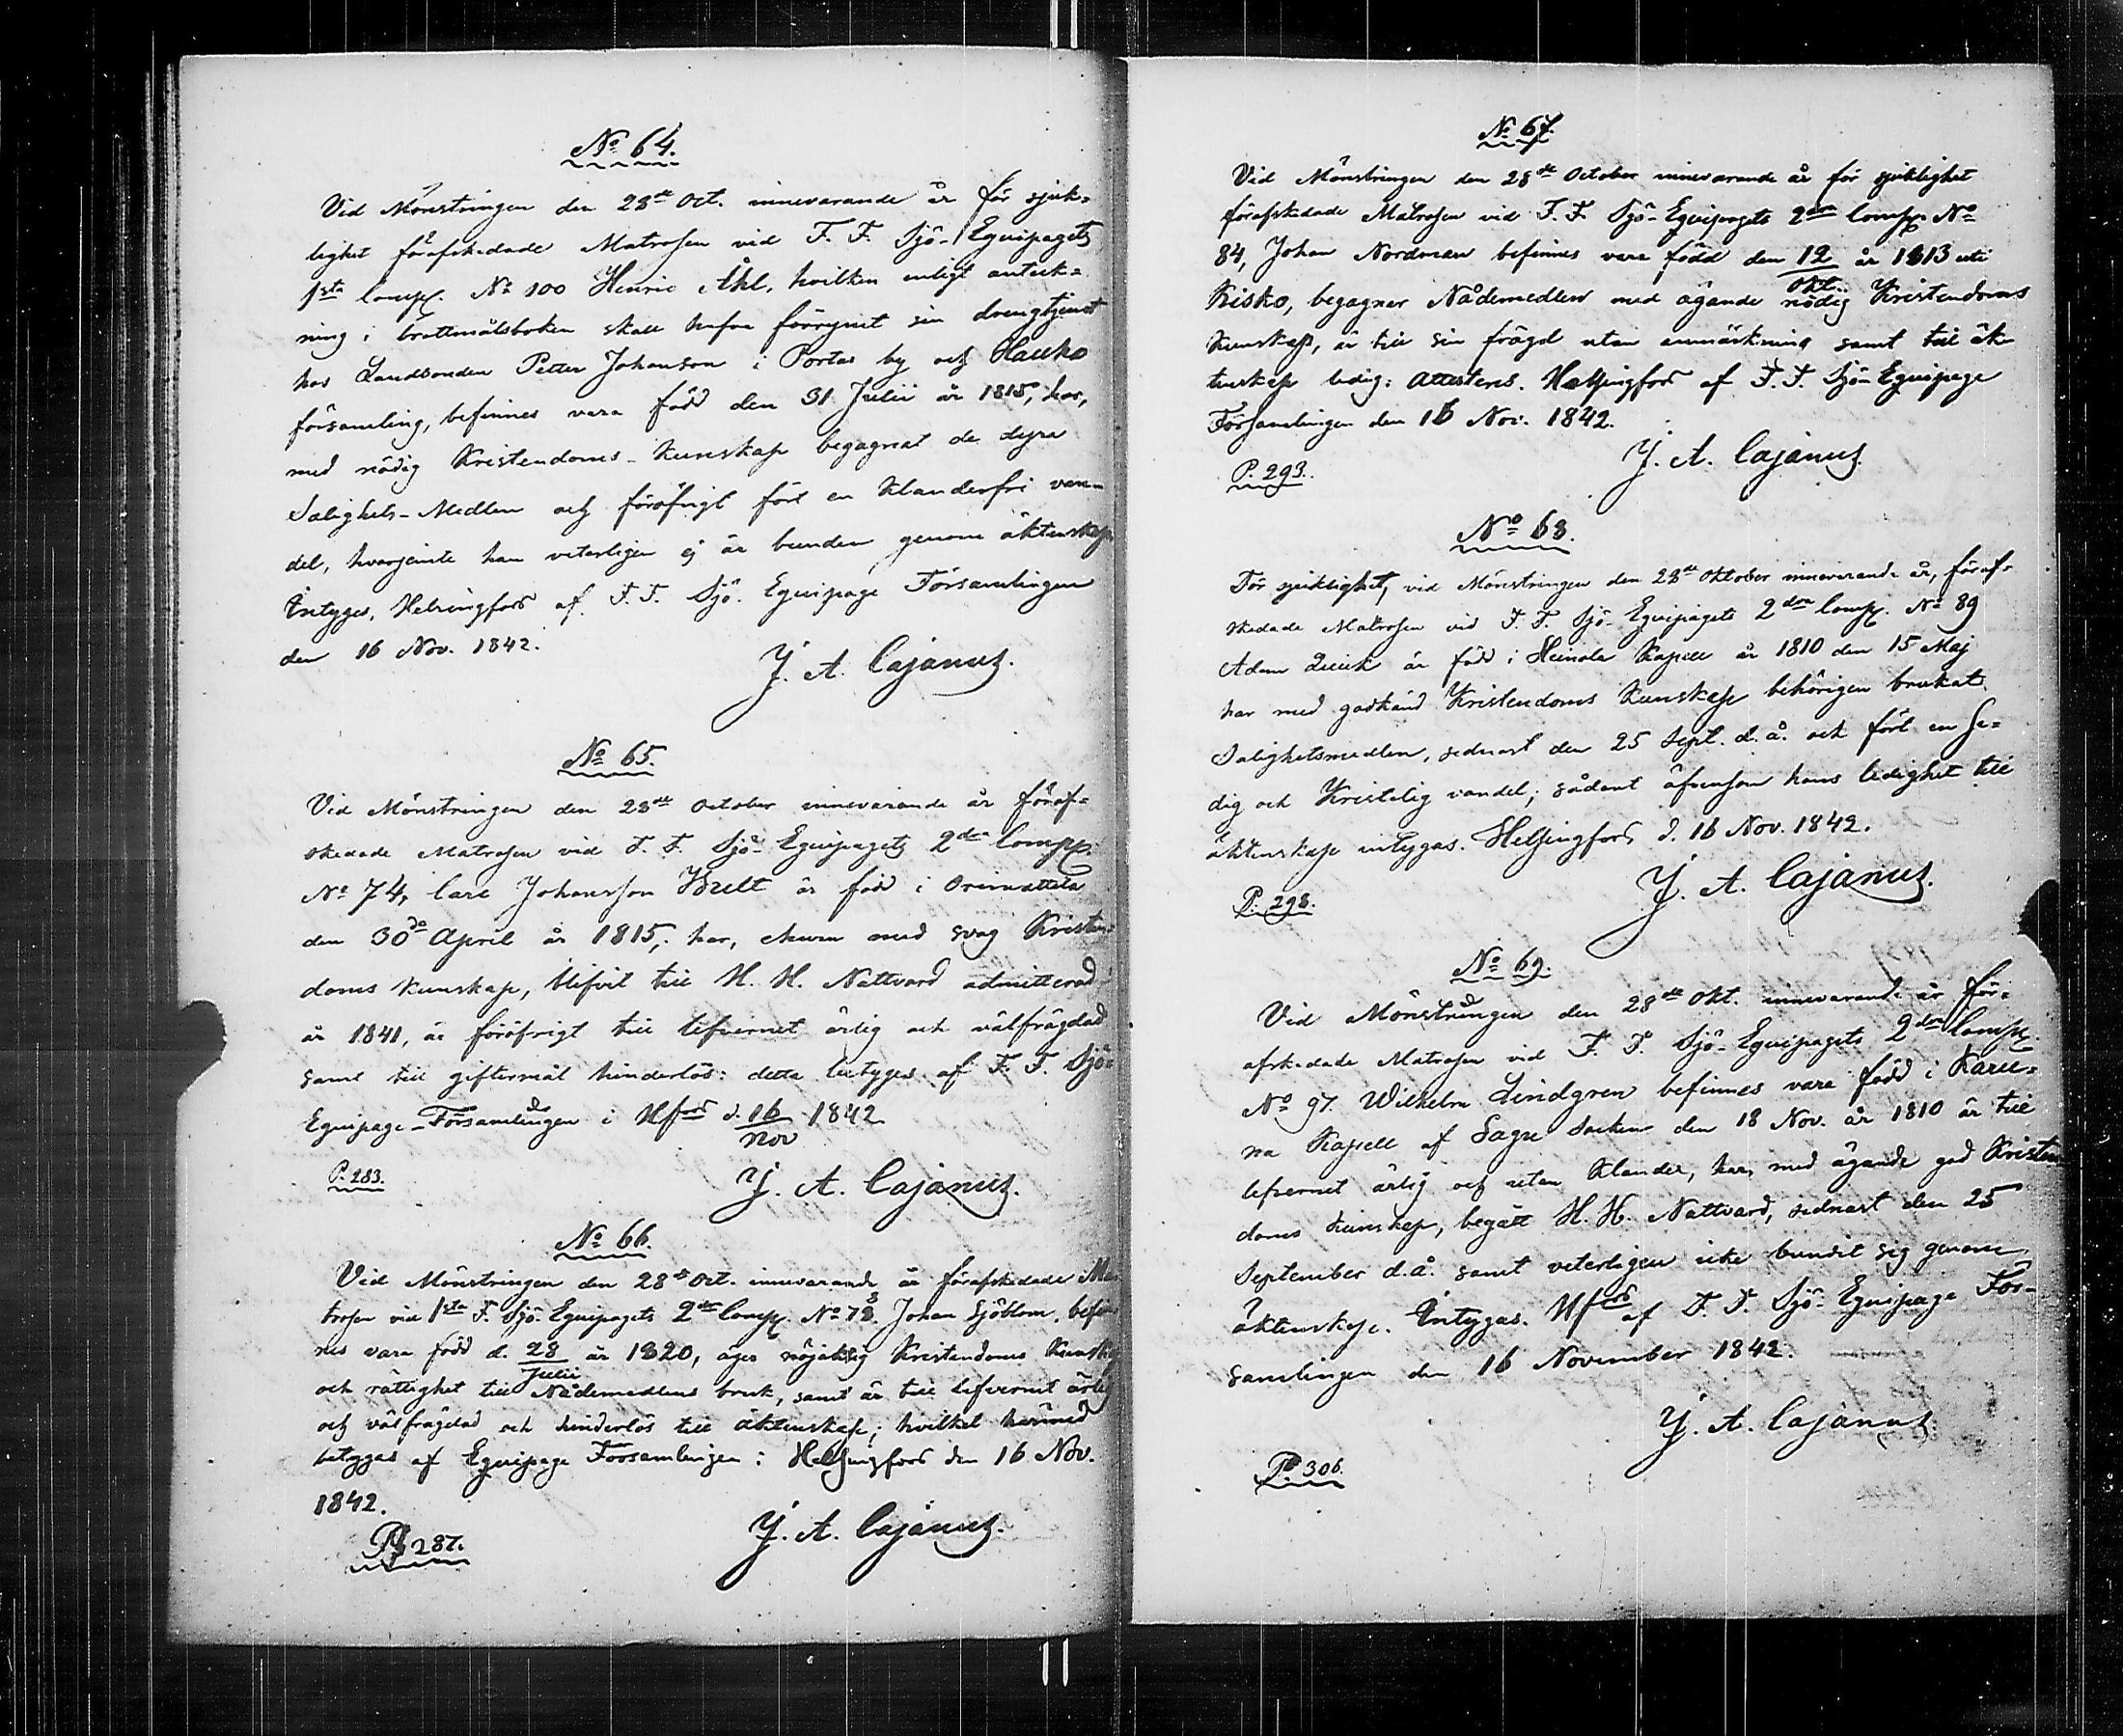 No 64.
Vid Mönstringen den 28de Oct. innevarande år för sjuk-
lighet förafskedade Matrosen vid F. F. Sjö-Equipagets
1sta Comp. No 100 Henric Åhl, hvilken enligt anteck-
ning i brottmålsboken skall hafva förrymt sin drengtjenst
hos Landbonden Petter Johanson i Portas by och Hauho
församling, befinnes vara född den 31 Julii år 1815, har,
med nödig Kristendoms-kunskap begagnat de dyra
Salighets-Medlen och föröfrigt fört en klanderfri van-
del, hvarjemte han veterligen ej är bunden genom äktenskap
Intyges, Helsingfors af F. F. Sjö-Equipage Församlingen
den 16 Nov. 1842.
J. A. Cajanus.
No 65.
Vid Mönstringen den 28de October innevarande år föraf-
skedade Matrosen vid F. F. Sjö-Equipagets 2dra Comp.
No 74, Carl Johansson Bult är född i Orimattila
den 30de April år 1815, har, ehuru med svag Kristen-
doms kunskap, blifvit till H. H. Nattvard admitterad
år 1841, är föröfrigt till lefvernet ärlig och välfrägdad
samt till giftermål hinderlös: detta betyges af F. F. Sjö-
Equipage-Församlingen i Hfors d. 16 1842
Nov
P. 283.
J. A. Cajanus.
No 66.
Vid Mönstringen den 28de Oct. innevarande år förafskedade Ma-
trosen vid 1sta F. Sjö-Equipagets 2dra Comp. No 78. Johan Sjöblom, befin-
nes vara född d. 28 år 1820, äger nöjaktig Kristendoms Kunskap
Julii
och rättighet till Nådemedlens bruk, samt är till lefvernet ärlig
och välfrägdad och hinderlös till äktenskap; hvilket härmed
betygas af Equipage Församlingen i Helsingfors den 16 Nov.
1842.
J. A. Cajanus.
P. 287.
No 67.
Vid Mönstringen den 28de October innevarande år för sjuklighet
förafskedade Matrosen vid F. F. Sjö-Equipagets 2dra Comp. No
84, Johan Nordman befinnes vara född den 12 år 1813 uti
Okt.
Kisko, begagner Nådemedlen med ägande nödig Kristendoms
kunskap, är till sin frägd utan anmärkning samt till äk-
tenskap ledig: Attesteres. Helsingfors af F. F. Sjö-Equipage
Församlingen den 16 Nov. 1842.
J. A. Cajanus.
P. 293.
No 68.
För sjuklighet, vid Mönstringen den 28de Oktober innevarande år, föraf-
skedade Matrosen vid F. F. Sjö-Equipagets 2dra Comp. No 89
Adam Quick är född i Heinola Kapell år 1810 den 15 Maj
har med godkänd Kristendoms Kunskap behörigen brukat
Salighetsmedlen, sednast den 25 Sept. d. å. och fört en se-
dig och Kristelig vandel; sådant äfvensom hans ledighet till
äktenskap intygas. Helsingfors d. 16 Nov. 1842.
J. A. Cajanus.
P. 298.
No 69.
Vid Mönstringen den 28de Okt. innevarande år för-
afskedade Matrosen vid F. F. Sjö-Equipagets 2dra Comp.
No 97. Wilhelm Lindgren befinnes vara född i Karu-
na Kapell af Sagu Socken den 18 Nov. år 1810 är till
lefvernet ärlig och utan klander, har, med ägande god Kristen
doms kunskap, begått H. H. Nattvard, sednast den 25
September d. å. samt veterligen icke bundit sig genom
äktenskap. Intygas. Hfors af F. F. Sjö-Equipage För-
samlingen den 16 November 1842.
J. A. Cajanus
P. 306.